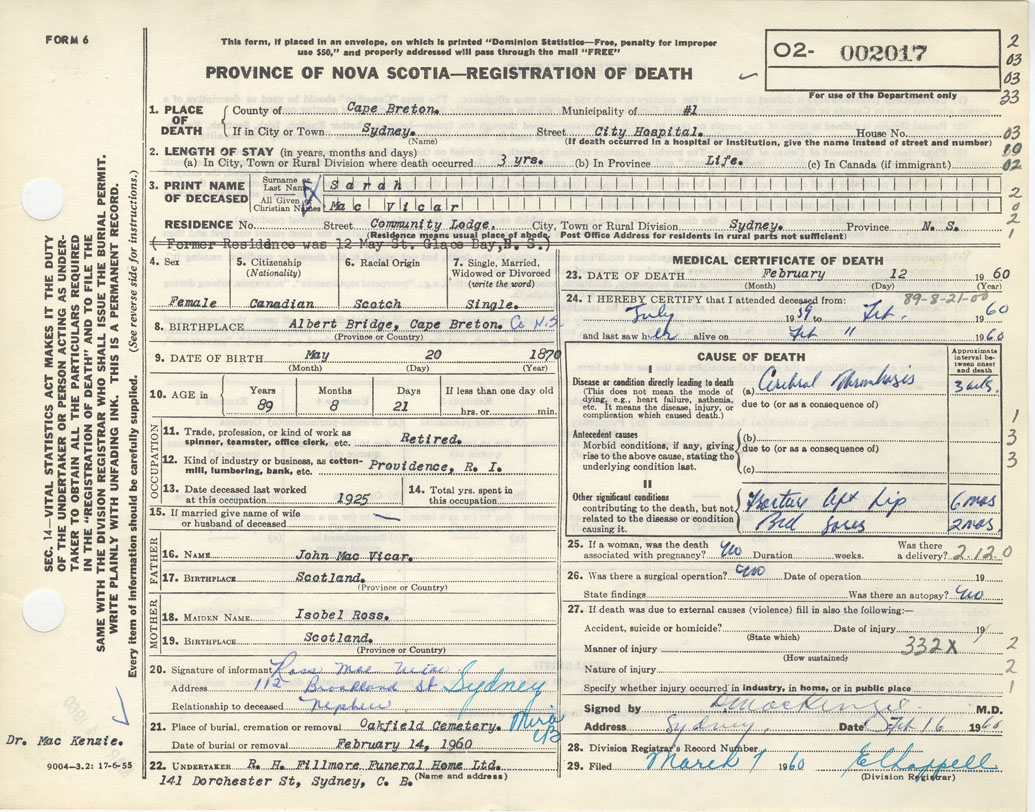 FORM 6
This form, if placed in an envelope, on which is printed "Dominion Statistics—Free, penalty for improper
use $50," and properly addressed will pass through the mail "FREE"
PROVINCE OF NOVA SCOTIA—REGISTRATION OF DEATH
02- 002017
For use of the Department only
2
03
03
33
1. PLACE OF DEATH
County of Cape Breton. Municipality of #1
If in City or Town Sydney. Street City Hospital. House No.
(Name) (If death occurred in a hospital or institution, give the name instead of street and number)
03
10
02
2. LENGTH OF STAY (in years, months and days)
(a) In City, Town or Rural Division where death occurred 3 yrs. (b) In Province Life. (c) In Canada (if immigrant)
3. PRINT NAME OF DECEASED
Surname or Last Name Sarah
All Given or Christian Names Mac Vicar
2
0
2
1
RESIDENCE No. Street Community Lodge. City, Town or Rural Division Sydney. Province N. S.
(Residence means usual place of abode. Post Office Address for residents in rural parts not sufficient)
( Former Residence was 12 May St. Glace Bay, N. S.)
4. Sex
Female
5. Citizenship
(Nationality)
Canadian
6. Racial Origin
Scotch
7. Single, Married,
Widowed or Divorced
(write the word)
Single.
8. BIRTHPLACE Albert Bridge, Cape Breton. Co N.S.
(Province or Country)
9. DATE OF BIRTH May 20 1870
(Month) (Day) (Year)
10. AGE in
Years Months Days If less than one day old
89 8 21 hrs. or min.
OCCUPATION
11. Trade, profession, or kind of work as
spinner, teamster, office clerk, etc. Retired.
12. Kind of industry or business, as cotton-
mill, lumbering, bank, etc. Providence, R. I.
13. Date deceased last worked
at this occupation 1925
14. Total yrs. spent in
this occupation
15. If married give name of wife
or husband of deceased —
FATHER
16. NAME John Mac Vicar.
17. BIRTHPLACE Scotland.
(Province or Country)
MOTHER
18. MAIDEN NAME Isobel Ross.
19. BIRTHPLACE Scotland.
(Province or Country)
20. Signature of informant Ross Mac Vicar
Address 112 Brookland St Sydney
Relationship to deceased Nephew
21. Place of burial, cremation or removal Oakfield Cemetery. Mira C/B
Date of burial or removal February 14, 1960
22. UNDERTAKER R. H. Fillmore Funeral Home Ltd.
(Name and address)
141 Dorchester St, Sydney, C. B.
MEDICAL CERTIFICATE OF DEATH
23. DATE OF DEATH February 12 1960
(Month) (Day) (Year)
24. I HEREBY CERTIFY that I attended deceased from: 89-8-21-00
July 1959 to Feb. 1960
and last saw her alive on Feb " 1960
CAUSE OF DEATH
Approximate
interval be-
tween onset
and death
I
Disease or condition directly leading to death
(This does not mean the mode of
dying, e.g., heart failure, asthenia,
etc. It means the disease, injury, or
complication which caused death.)
(a) Cerebral Thrombosis 3 wks.
due to (or as a consequence of)
Antecedent causes
Morbid conditions, if any, giving
rise to the above cause, stating the
underlying condition last.
(b)
due to (or as a consequence of)
(c)
1
3
3
II
Other significant conditions
contributing to the death, but not
related to the disease or condition
causing it.
Hip 6 mos
Bed Sores 2 mos.
25. If a woman, was the death
associated with pregnancy? No Duration weeks. Was there
a delivery? 2.12.0
26. Was there a surgical operation? No Date of operation 19
State findings Was there an autopsy? No
27. If death was due to external causes (violence) fill in also the following:—
Accident, suicide or homicide? Date of injury 19
(State which)
Manner of injury 332X 2
(How sustained)
Nature of injury 2
Specify whether injury occurred in industry, in home, or in public place 1
Signed by MacKenzie M.D.
Address Sydney Date Feb 16 1960
28. Division Registrar's Record Number
29. Filed March 7 1960 E Chappell
(Division Registrar)
SEC. 14—VITAL STATISTICS ACT MAKES IT THE DUTY
OF THE UNDERTAKER OR PERSON ACTING AS UNDER-
TAKER TO OBTAIN ALL THE PARTICULARS REQUIRED
IN THE "REGISTRATION OF DEATH" AND TO FILE THE
SAME WITH THE DIVISION REGISTRAR WHO SHALL ISSUE THE BURIAL PERMIT.
WRITE PLAINLY WITH UNFADING INK. THIS IS A PERMANENT RECORD.
Every item of information should be carefully supplied. (See reverse side for instructions.)
Dr. Mac Kenzie.
9004-3.2: 17-6-55